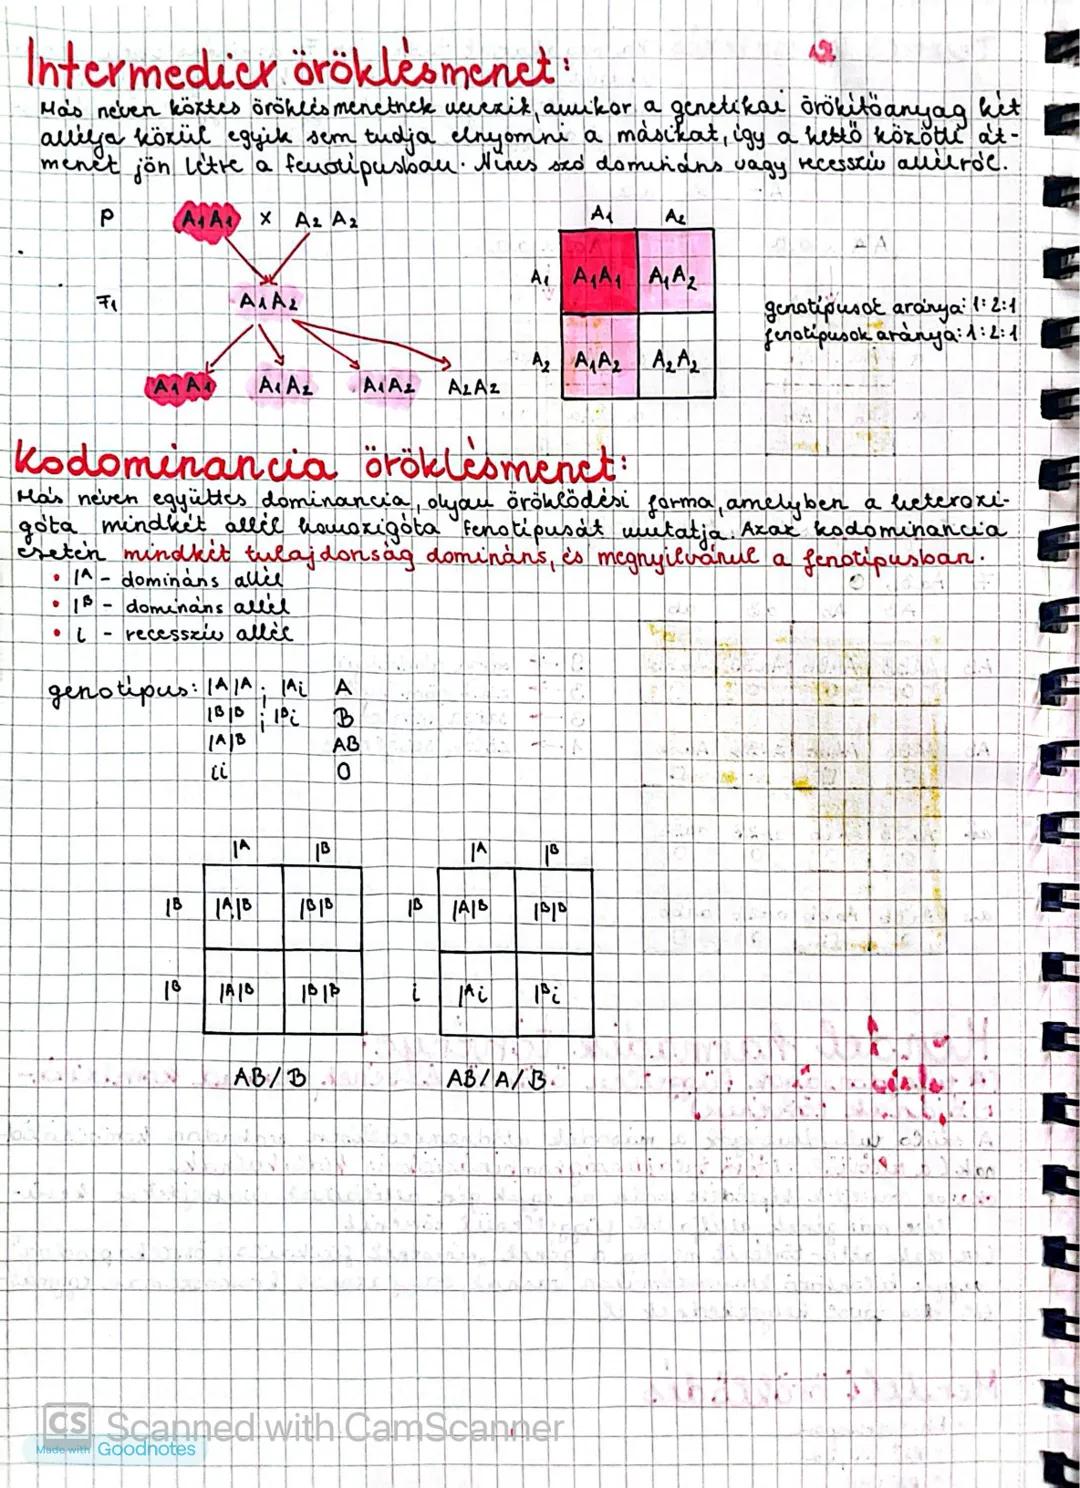 Intermedier öröklésmenet:
Más néven köztes öröklésmenetnek nevezik, amikor a genetikai örökítőanyag két
allélja közül egyik sem tudja elnyomni a másikat, így a kettő közötti át-
menet jön létre a fenotípusban. Nincs szó domináns vagy recesszív allélról.
P A₁A₁ x A₂A₂
F₁ A₁A₂
A₁A₁ A₁A₂ A₁A₂ A₂A₂
A₁ A₂
A₁ A₁A₁ A₁A₂
A₂ A₁A₂ A₂A₂
genotípusok aránya: 1:2:1
fenotípusok aránya: 1:2:1
Kodominancia öröklésmenet:
Más néven együttes dominancia, olyan öröklődési forma, amelyben a heterozi-
góta mindkét allél homozigóta fenotípusát mutatja. Azaz kodominancia
esetén mindkét tulajdonság domináns, és megnyilvánul a fenotípusban.
• Iᴬ - domináns allél
• Iᴮ - domináns allél
• i - recesszív allél
genotípus: IᴬIᴬ ; Iᴬi A
IᴮIᴮ ; Iᴮi B
IᴬIᴮ AB
ii 0
Iᴬ Iᴮ
Iᴮ IᴬIᴮ IᴮIᴮ
Iᴮ IᴬIᴮ IᴮIᴮ
AB/B
Iᴬ Iᴮ
Iᴮ IᴬIᴮ IᴮIᴮ
i Iᴬi Iᴮi
AB/A/B
CS Scanned with CamScanner
Made with Goodnotes